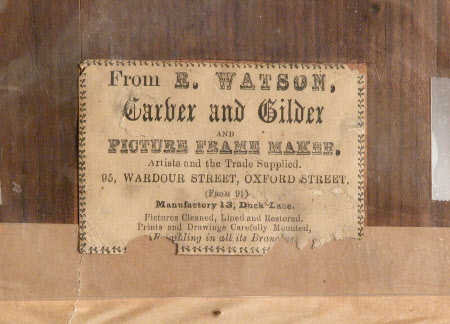 From R. WATSON,
Carver and Gilder
AND
PICTURE FRAME MAKER.
Artists and the Trade Supplied.
95, WARDOUR STREET, OXFORD STREET,
(FROM 91)
Manufactory 13, Duck Lane.
Pictures Cleaned, Lined and Restored,
Prints and Drawings Carefully Mounted,
in all its Branches